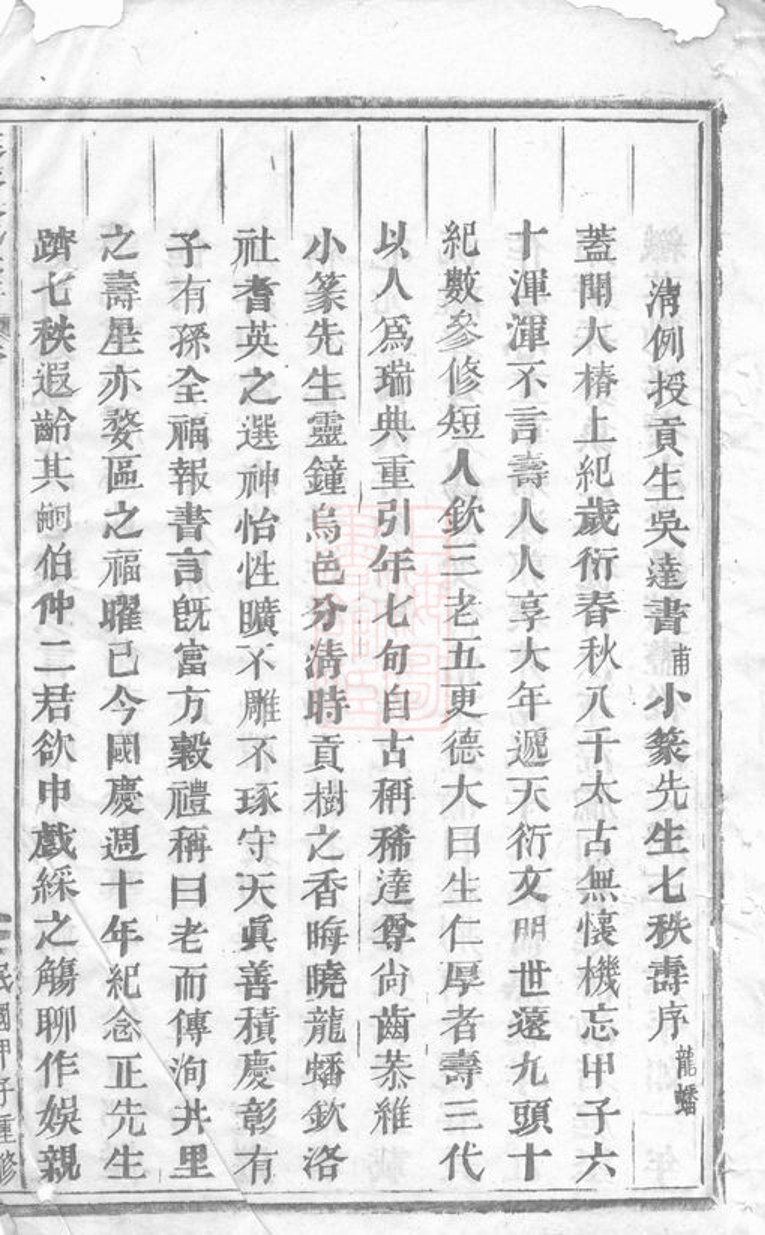 清例授貢生吳達書甫小篆先生七秩壽序龍蟠
蓋聞大椿上紀歲衍春秋八千太古無懷機忘甲子六
十渾渾不言壽人人享大年遞天衍文明世遠九頭十
紀數參修短人欽三老五更德大曰生仁厚者壽三代
以人爲瑞典重引年七旬自古稱稀達尊尙齒恭維
小篆先生靈鐘烏邑分淸時貢樹之香晦曉龍蟠欽洛
社耆英之選神怡性曠不雕不琢守天眞善積慶彰有
子有孫全福報書言旣富方穀禮稱曰老而傳洵井里
之壽星亦婺區之福曜已今國慶週十年紀念正先生
躋七秩遐齡其嗣伯仲二君欲申戲綵之觴聊作娛親
民國甲子重修